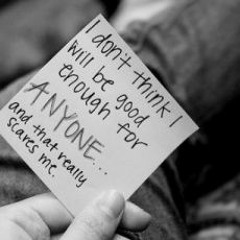 I don't think I
will be good
enough for
ANYONE...
and that really
scares me.